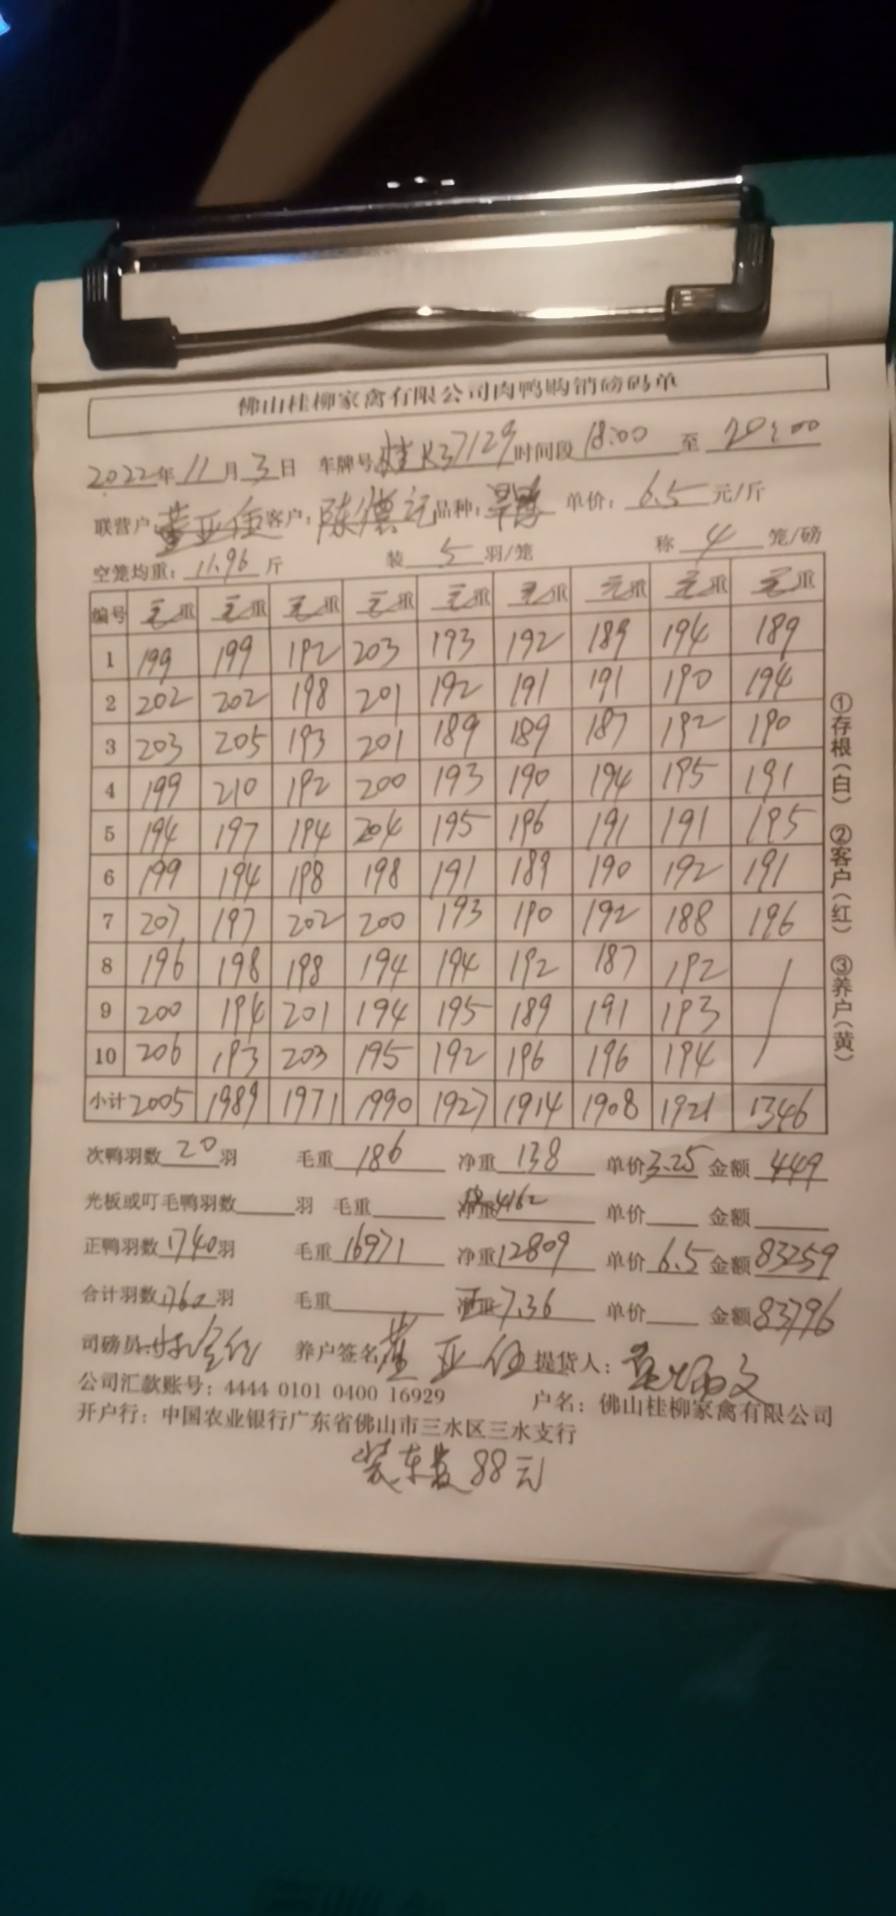 佛山桂柳家禽有限公司肉鸭购销磅码单
2022年11月3日 车牌号桂K37129时间段18:00至20:00
联营户:董亚任客户:陈德记品种: 单价:6.5元/斤
空笼均重:11.96斤 装5羽/笼 称4笼/磅
编号 毛重 毛重 毛重 毛重 毛重 毛重 毛重 毛重 毛重
1 199 199 192 203 193 192 189 194 189
2 202 202 198 201 192 191 191 190 194
3 203 205 193 201 189 189 187 192 190
4 199 210 192 200 193 190 194 195 191
5 194 197 194 204 195 196 191 191 195
6 199 194 198 198 191 189 190 192 191
7 207 197 202 200 193 190 192 188 196
8 196 198 198 194 194 192 187 192
9 200 194 201 194 195 189 191 193
10 206 193 203 195 192 196 196 194
小计 2005 1989 1971 1990 1927 1914 1908 1921 1346
次鸭羽数20羽 毛重186 净重138 单价3.25 金额449
光板或叮毛鸭羽数 羽 毛重 净重4162 单价 金额
正鸭羽数1740羽 毛重16971 净重12809 单价6.5 金额83259
合计羽数1760羽 毛重 7.36 单价 金额83796
司磅员: 养户签名董亚任 提货人:
公司汇款账号:4444 0101 0400 16929 户名:佛山桂柳家禽有限公司
开户行:中国农业银行广东省佛山市三水区三水支行
装车费88元
①存根(白) ②客户(红) ③养户(黄)